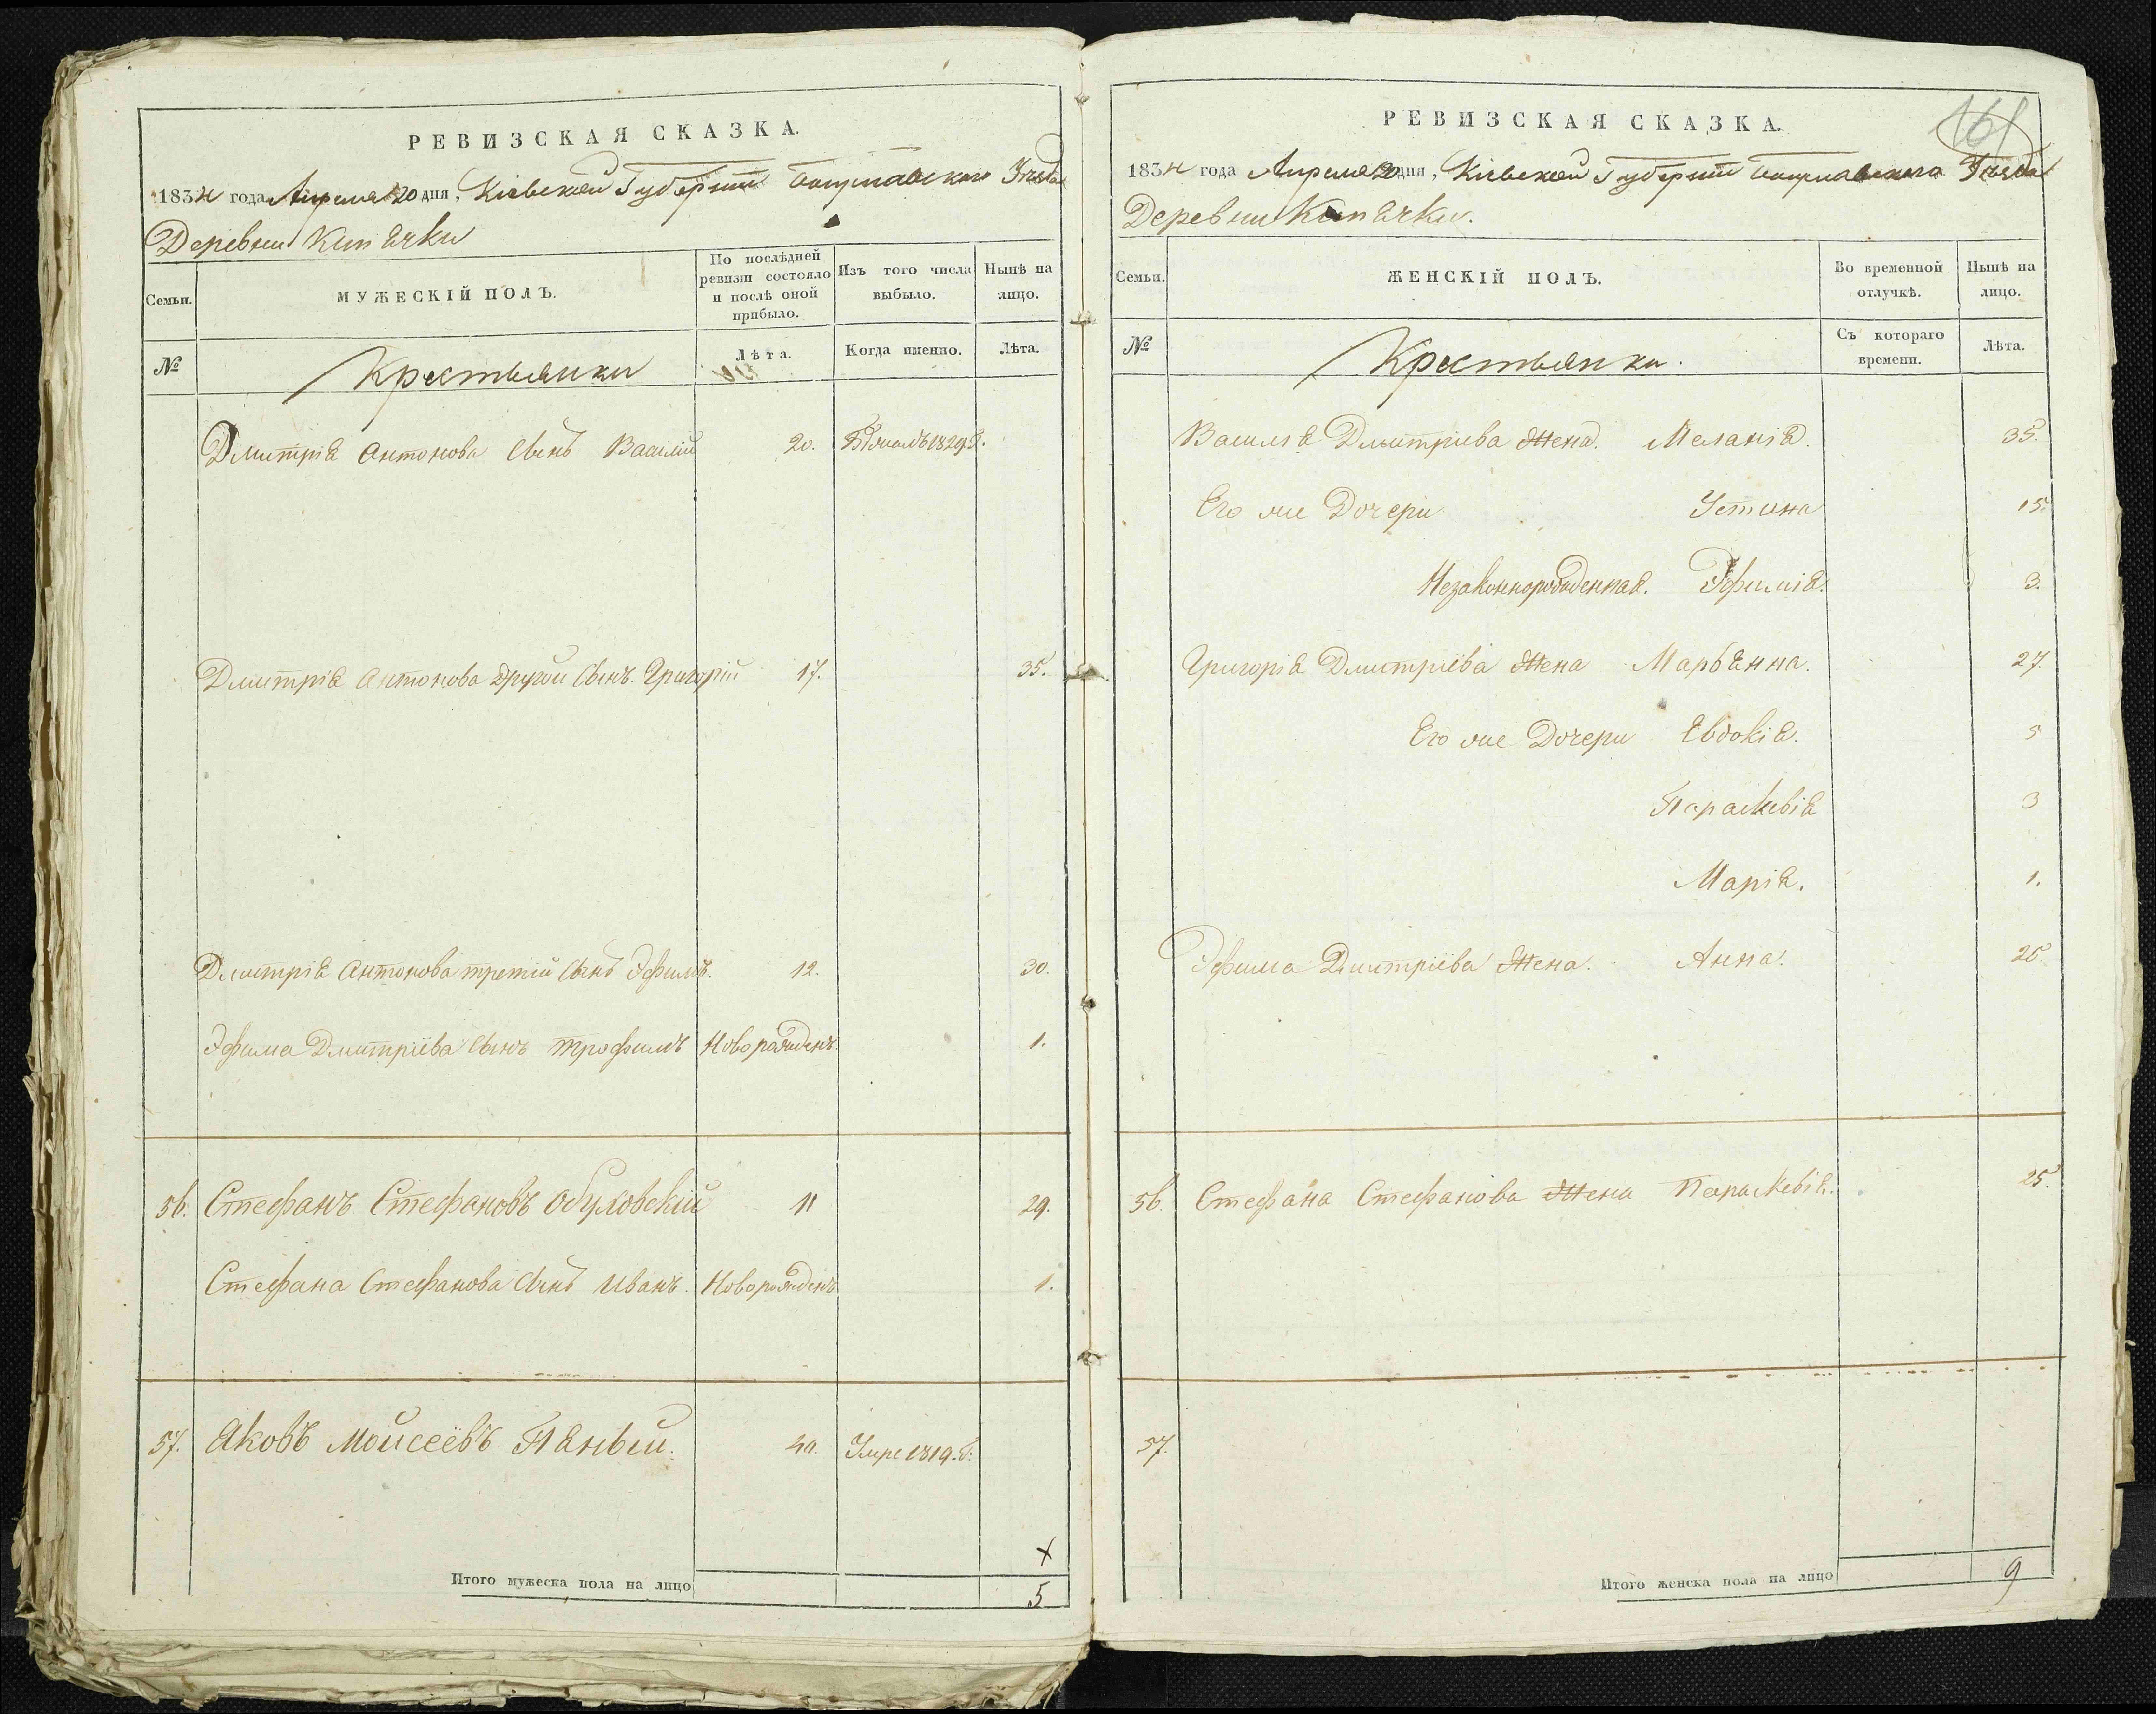 РЕВИЗСКАЯ СКАЗКА.
1834 года Апреля 20 дня, Кіевской Губерніи Богуславского Уезда
Деревни Кипячки
Семьи.
МУЖЕСКІЙ ПОЛЪ.
По послѣдней ревизіи состояло и послѣ оной прибыло.
Изъ того числа выбыло.
Нынѣ на лицо.
№
Крестьянки
Лѣта.
Когда именно.
Лѣта.
Дмитрія Антонова Сынъ Василій 20. 1829.
Дмитрія Антонова другой Сынъ Григорій 17. 35.
Дмитрія Антонова третій Сынъ Эфимъ. 12. 30.
Эфима Дмитріева Сынъ Трофимъ Новорожденъ. 1.
56. Стефанъ Стефановъ Обуховскій 11 29.
Стефана Стефанова Сынъ Иванъ. Новорожденъ 1.
57. Яковъ Мойсеёвъ Пяный. 40. Умре 1819. г.
Итого мужеска пола на лицо 5
161
РЕВИЗСКАЯ СКАЗКА.
1834 года Апреля 20 дня, Кіевской Губерніи Богуславскаго Уезда
Деревни Кипячки.
Семьи.
ЖЕНСКІЙ ПОЛЪ.
Во временной отлучкѣ.
Нынѣ на лицо.
№
Крестьянки.
Съ котораго времени.
Лѣта.
Василія Дмитріева Жена. Меланія. 35.
Его же Дочери Устина 15.
Незаконнорожденная. Эфимія. 3.
Григорія Дмитріева Жена Марьянна. 27.
Его же Дочери Евдокія. 5
Параскевія 3
Марія. 1.
Эфима Дмитріева Жена. Анна. 26.
56. Стефана Стефанова Жена Параскевія. 25.
57.
Итого женска пола на лицо 9